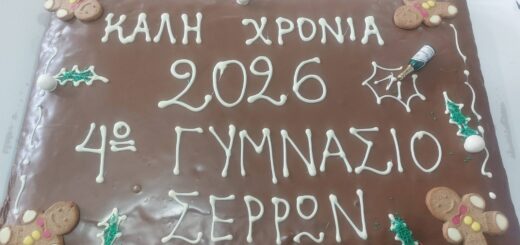 ΚΑΛΗ ΧΡΟΝΙΑ
2026
4º ΓΥΜΝΑΣΙΟ
ΣΕΡΡΩΝ